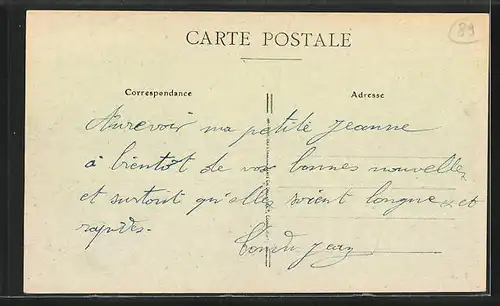 89
CARTE POSTALE
Correspondance
Adresse
Aurevoir ma petite Jeanne
à bientôt de vos bonnes nouvelles
et surtout qu'elles soient longues et
rapides.